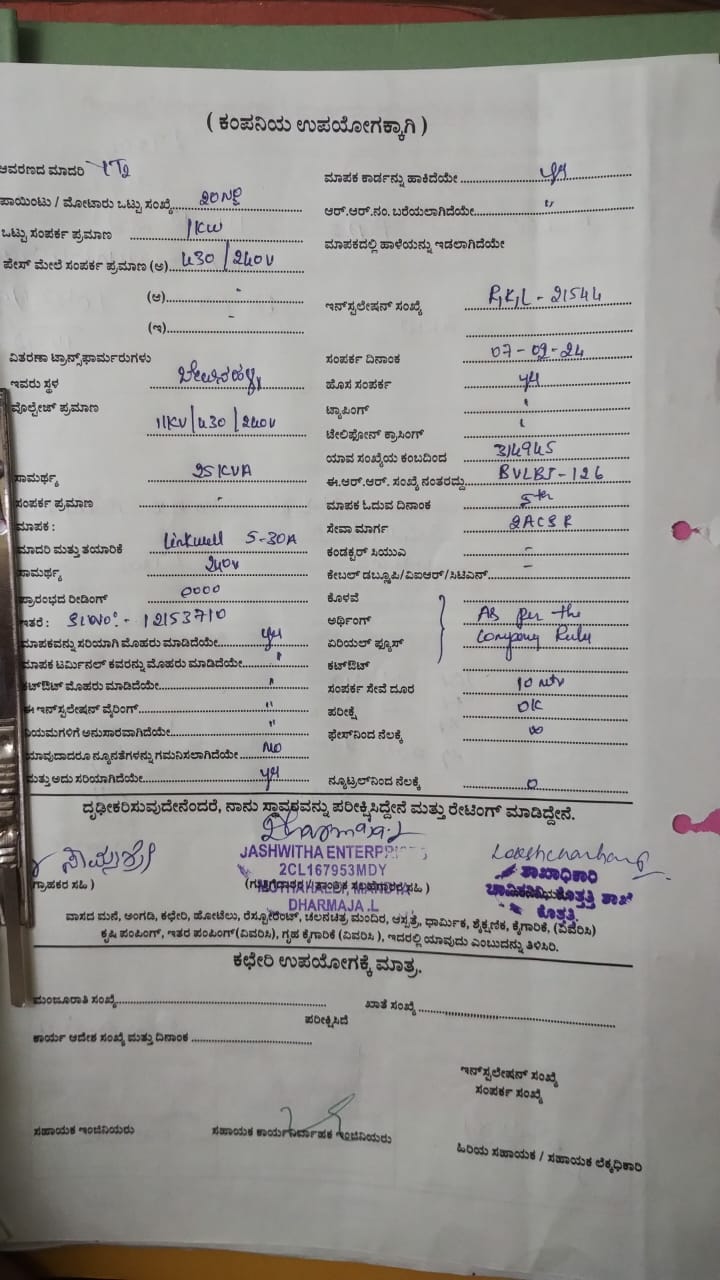 ( ಕಂಪನಿಯ ಉಪಯೋಗಕ್ಕಾಗಿ )
ಆವರಣದ ಮಾದರಿ
ಪಾಯಿಂಟು / ಮೋಟಾರು ಒಟ್ಟು ಸಂಖ್ಯೆ
ಒಟ್ಟು ಸಂಪರ್ಕ ಪ್ರಮಾಣ 1KW
ಪೇಸ್ ಮೇಲೆ ಸಂಪರ್ಕ ಪ್ರಮಾಣ (ಅ) 430/240V
(ಆ) -
(ಇ) -
ವಿತರಣಾ ಟ್ರಾನ್ಸ್‌ಫಾರ್ಮರುಗಳು
ಇವರು ಸ್ಥಳ
ವೊಲ್ಟೇಜ್ ಪ್ರಮಾಣ 11KV/430/240V
ಸಾಮರ್ಥ್ಯ 25KVA
ಸಂಪರ್ಕ ಪ್ರಮಾಣ -
ಮಾಪಕ :
ಮಾದರಿ ಮತ್ತು ತಯಾರಿಕೆ Linkwell 5-30A
ಸಾಮರ್ಥ್ಯ 240V
ಪ್ರಾರಂಭದ ರೀಡಿಂಗ್ 0000
ಇತರೆ : Sl No:- 12153710
ಮಾಪಕವನ್ನು ಸರಿಯಾಗಿ ಮೊಹರು ಮಾಡಿದೆಯೇ yes
ಮಾಪಕ ಟರ್ಮಿನಲ್ ಕವರನ್ನು ಮೊಹರು ಮಾಡಿದೆಯೇ "
ಕಟ್‌ಔಟ್ ಮೊಹರು ಮಾಡಿದೆಯೇ "
ಈ ಇನ್‌ಸ್ಟಲೇಷನ್ ವೈರಿಂಗ್ "
ನಿಯಮಗಳಿಗೆ ಅನುಸಾರವಾಗಿದೆಯೇ "
ಯಾವುದಾದರೂ ನ್ಯೂನತೆಗಳನ್ನು ಗಮನಿಸಲಾಗಿದೆಯೇ NO
ಮತ್ತು ಅದು ಸರಿಯಾಗಿದೆಯೇ yes
ಮಾಪಕ ಕಾರ್ಡನ್ನು ಹಾಕಿದೆಯೇ yes
ಆರ್.ಆರ್.ನಂ. ಬರೆಯಲಾಗಿದೆಯೇ "
ಮಾಪಕದಲ್ಲಿ ಹಾಳೆಯನ್ನು ಇಡಲಾಗಿದೆಯೇ
ಇನ್‌ಸ್ಟಲೇಷನ್ ಸಂಖ್ಯೆ - 21544
ಸಂಪರ್ಕ ದಿನಾಂಕ 07-09-24
ಹೊಸ ಸಂಪರ್ಕ yes
ಟ್ಯಾಪಿಂಗ್
ಟೇಲಿಫೋನ್ ಕ್ರಾಸಿಂಗ್
ಯಾವ ಸಂಖ್ಯೆಯ ಕಂಬದಿಂದ 314945
ಈ.ಆರ್.ಆರ್. ಸಂಖ್ಯೆ ನಂತರದ್ದು BVLBJ-126
ಮಾಪಕ ಓದುವ ದಿನಾಂಕ 5th
ಸೇವಾ ಮಾರ್ಗ 2ACSR
ಕಂಡಕ್ಟರ್ ಸಿಯುಎ -
ಕೇಬಲ್ ಡಬ್ಲ್ಯೂಪಿ/ಎಐಆರ್/ಸಿಟಿಎಸ್ -
ಕೊಳವೆ
ಅರ್ಥಿಂಗ್ As per the
ಏರಿಯಲ್ ಫ್ಯೂಸ್ Company Rules
ಕಟ್‌ಔಟ್
ಸಂಪರ್ಕ ಸೇವೆ ದೂರ 10 mtr
ಪರೀಕ್ಷೆ OK
ಫೇಸ್‌ನಿಂದ ನೆಲಕ್ಕೆ ∞
ನ್ಯೂಟ್ರಲ್‌ನಿಂದ ನೆಲಕ್ಕೆ 0
ದೃಢೀಕರಿಸುವುದೇನೆಂದರೆ, ನಾನು ಸ್ಥಾವರವನ್ನು ಪರೀಕ್ಷಿಸಿದ್ದೇನೆ ಮತ್ತು ರೇಟಿಂಗ್ ಮಾಡಿದ್ದೇನೆ.
Dharmaja.L
JASHWITHA ENTERPRISES
2CL167953MDY
DHARMAJA.L
ಗ್ರಾಹಕರ ಸಹಿ )
ಶಾಖಾಧಿಕಾರಿ
ಕೊತ್ತತ್ತಿ ಶಾಖೆ
ಕೊತ್ತತ್ತಿ
ವಾಸದ ಮನೆ, ಅಂಗಡಿ, ಕಛೇರಿ, ಹೋಟೆಲು, ರೆಸ್ಟೂರೆಂಟ್, ಚಲನಚಿತ್ರ ಮಂದಿರ, ಆಸ್ಪತ್ರೆ, ಧಾರ್ಮಿಕ, ಶೈಕ್ಷಣಿಕ, ಕೈಗಾರಿಕೆ, (ವಿವರಿಸಿ)
ಕೃಷಿ ಪಂಪಿಂಗ್, ಇತರ ಪಂಪಿಂಗ್(ವಿವರಿಸಿ), ಗೃಹ ಕೈಗಾರಿಕೆ (ವಿವರಿಸಿ ), ಇದರಲ್ಲಿ ಯಾವುದು ಎಂಬುದನ್ನು ತಿಳಿಸಿರಿ.
ಕಛೇರಿ ಉಪಯೋಗಕ್ಕೆ ಮಾತ್ರ.
ಮಂಜೂರಾತಿ ಸಂಖ್ಯೆ ಖಾತೆ ಸಂಖ್ಯೆ
ಪರೀಕ್ಷಿಸಿದೆ
ಕಾರ್ಯ ಆದೇಶ ಸಂಖ್ಯೆ ಮತ್ತು ದಿನಾಂಕ
ಇನ್‌ಸ್ಟಲೇಷನ್ ಸಂಖ್ಯೆ
ಸಂಪರ್ಕ ಸಂಖ್ಯೆ
ಸಹಾಯಕ ಇಂಜಿನಿಯರು ಸಹಾಯಕ ಕಾರ್ಯನಿರ್ವಾಹಕ ಇಂಜಿನಿಯರು ಹಿರಿಯ ಸಹಾಯಕ / ಸಹಾಯಕ ಲೆಕ್ಕಧಿಕಾರಿ